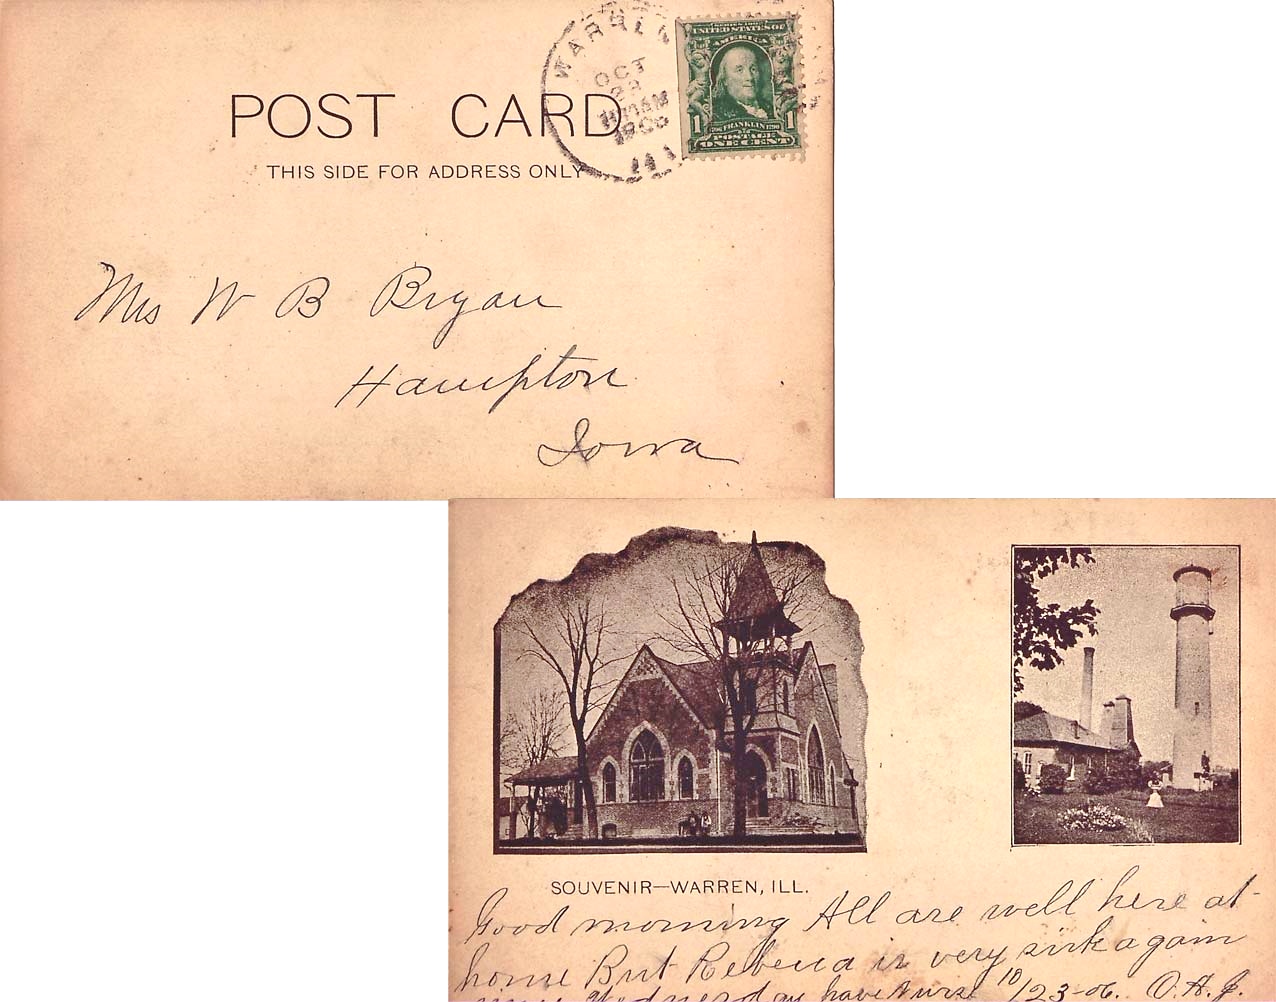 WARREN
OCT
23
AM
1906
ILL
SERIES 1902
UNITED STATES OF
AMERICA
1 FRANKLIN 1
POSTAGE
ONE CENT
POST CARD
THIS SIDE FOR ADDRESS ONLY
Mrs W B Bryan
Hampton
Iowa
SOUVENIR—WARREN, ILL.
Good morning All are well here at
home But Rebecca is very sick again
since Wednesday have Nurse 10/23-06. O.A.G.